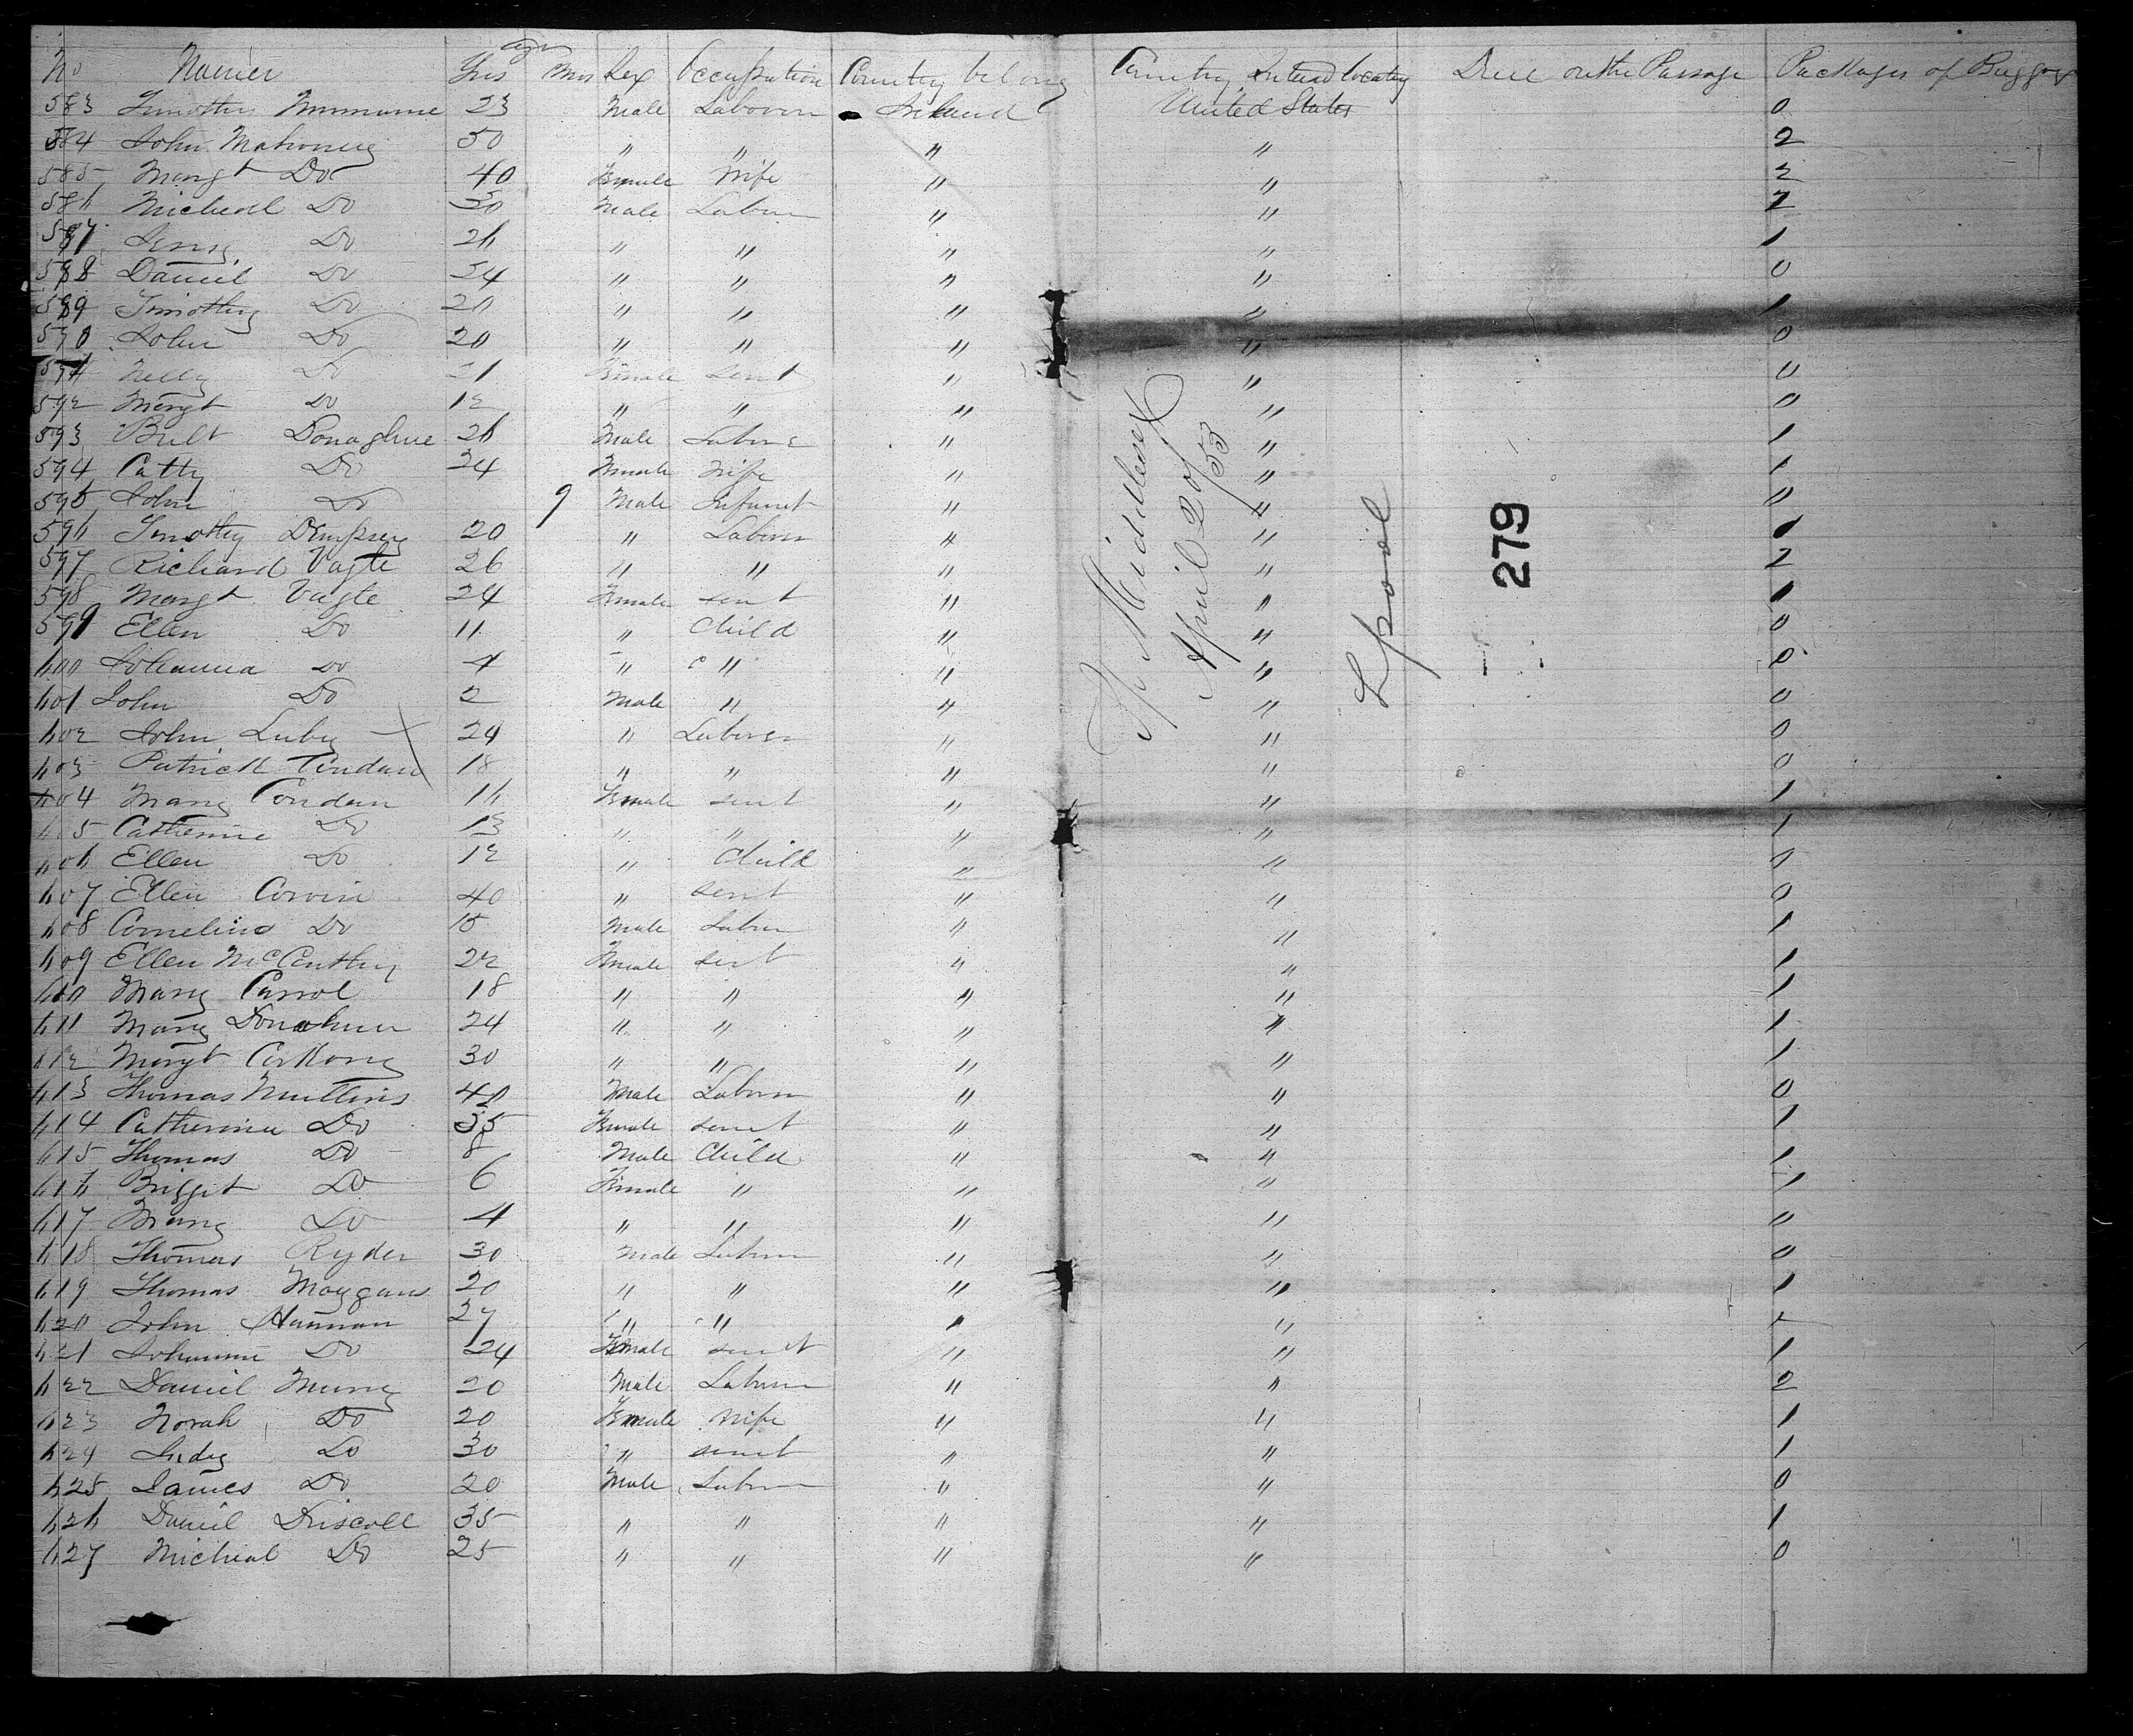 No Names Age Yrs Mos Sex Occupation Country belong Country Intend locating Died on the Passage Packages of Baggage
583 Timothy 23 Male Laborer Ireland United States 0
584 John Mahoney 50 " " " " 2
585 Margt Do 40 Female Wife " " 2
586 Micheal Do 30 Male Labour " " 2
587 Jerry Do 26 " " " " 1
588 Daniel Do 24 " " " " 0
589 Timothy Do 20 " " " " 1
590 John Do 20 " " " " 0
591 Nelly Do 21 Female Servt " " 0
592 Margt Do 12 " " " " 0
593 Donaghue 26 Male Labour " " 1
594 Catty Do 24 Female Wife " " 1
595 John Do 9 Male Infant " " 0
596 Timothy Dempsey 20 " Labour " " 1
597 Richard Vagte 26 " " " " 2
598 Margt Vagte 24 Female Servt " " 1
599 Ellen Do 11 " Child " " 0
600 Johanna Do 4 " " " " 0
601 John Do 2 Male " " " 0
602 John Luby 24 " Laborer " " 0
603 Patrick Condan 18 " " " " 0
604 Mary Condan 16 Female Servt " " 1
605 Catherine Do 13 " " " " 1
606 Ellen Do 12 " Child " " 0
607 Ellen Corvin 40 " Servt " " 0
608 Cornelius Do 15 Male Labour " " 1
609 Ellen McCarthy 22 Female Servt " " 1
610 Mary Carrol 18 " " " " 1
611 Mary Donahue 24 " " " " 1
612 Margt 30 " " " " 1
613 Thomas Mullins 40 Male Labour " " 0
614 Catherine Do 35 Female Servt " " 1
615 Thomas Do 8 Male Child " " 1
616 Brigget Do 6 Female " " " 1
617 Mary Do 4 " " " " 0
618 Thomas Ryder 30 Male Labour " " 0
619 Thomas Moygans 20 " " " " 1
620 John Hannan 27 " " " "
621 Johanna Do 24 Female Servt " " 1
622 Daniel Murry 20 Male Labour " " 2
623 Norah Do 20 Female Wife " " 1
624 Judy Do 30 " Servt " " 1
625 James Do 20 Male Labour " " 0
626 Daniel Driscoll 35 " " " " 1
627 Micheal Do 25 " " " " 0
Sp Middlesex
April 20/53
Lpool
279